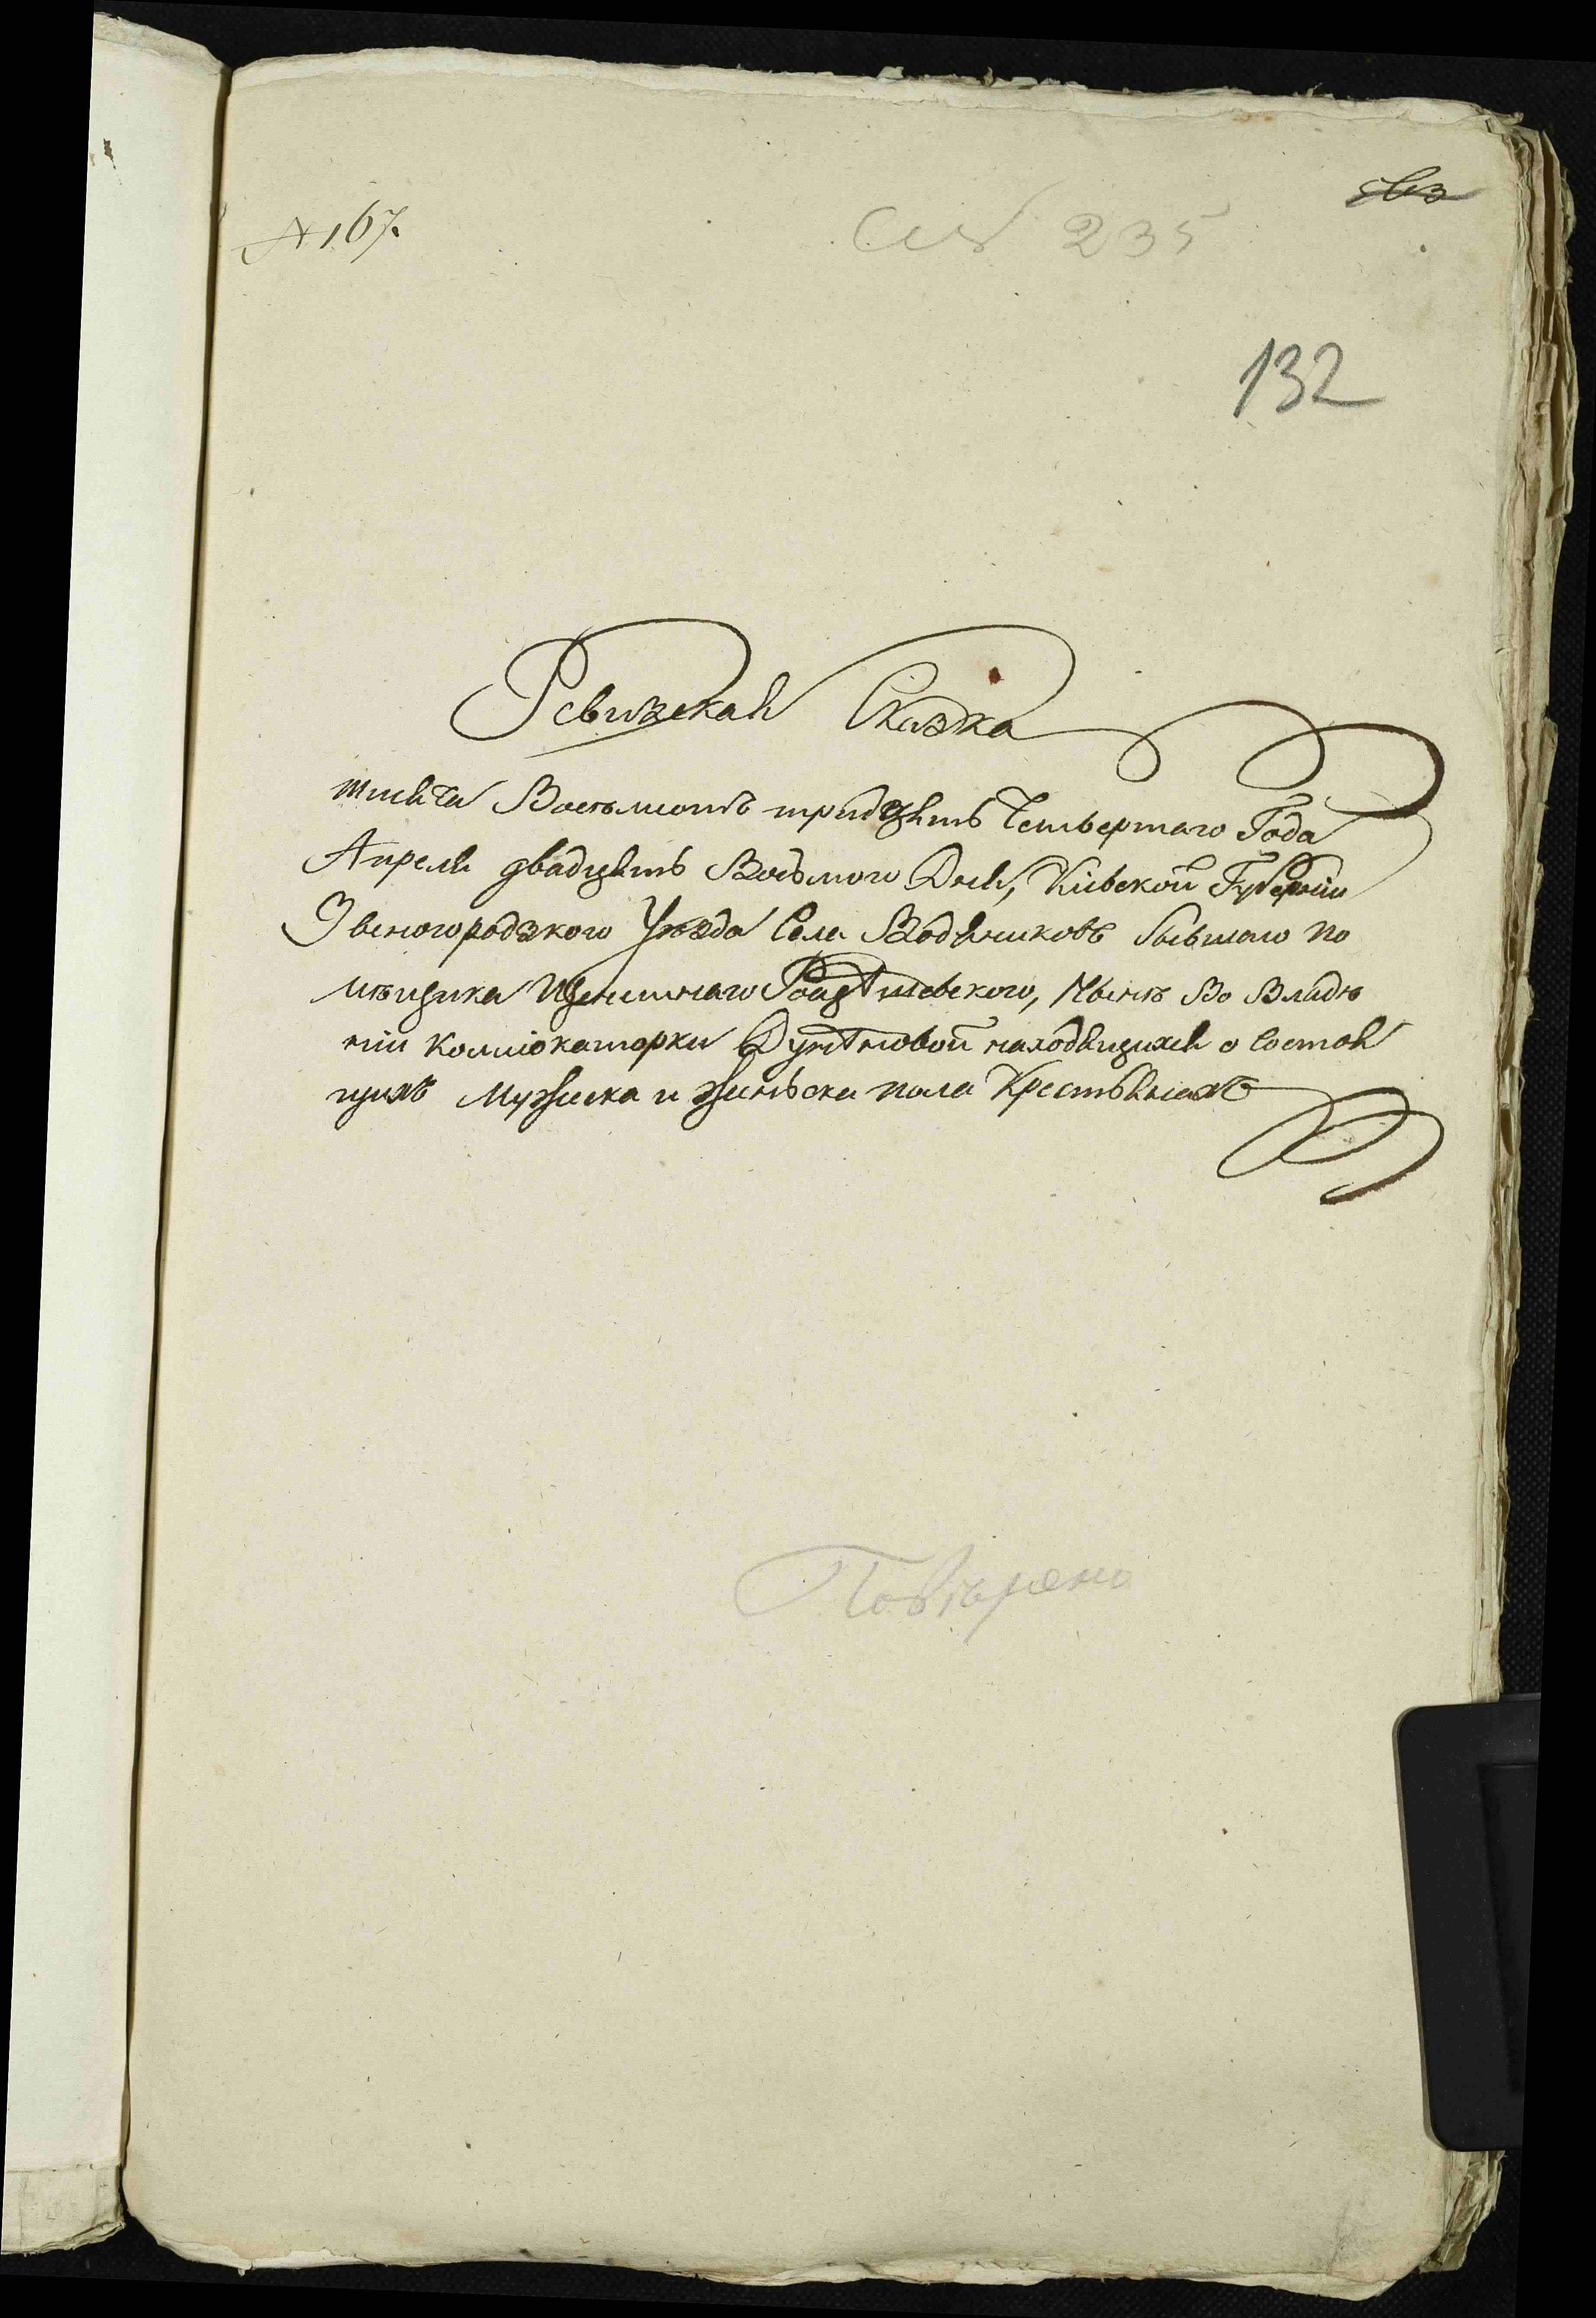 № 167.
235
132
Ревизская Сказка
тысяча Восемьсотъ тридцять Четвертаго Года
Апреля двадцять Восьмого Дня, Кіевской Губерніи
Звеногородзкого Уезда Села Водяниковъ бывшаго по
мѣщика
нія комиіокаторки находящихся о Состоя
щихъ Мужеска и Женьска пола Крестьянахъ
Повѣрено